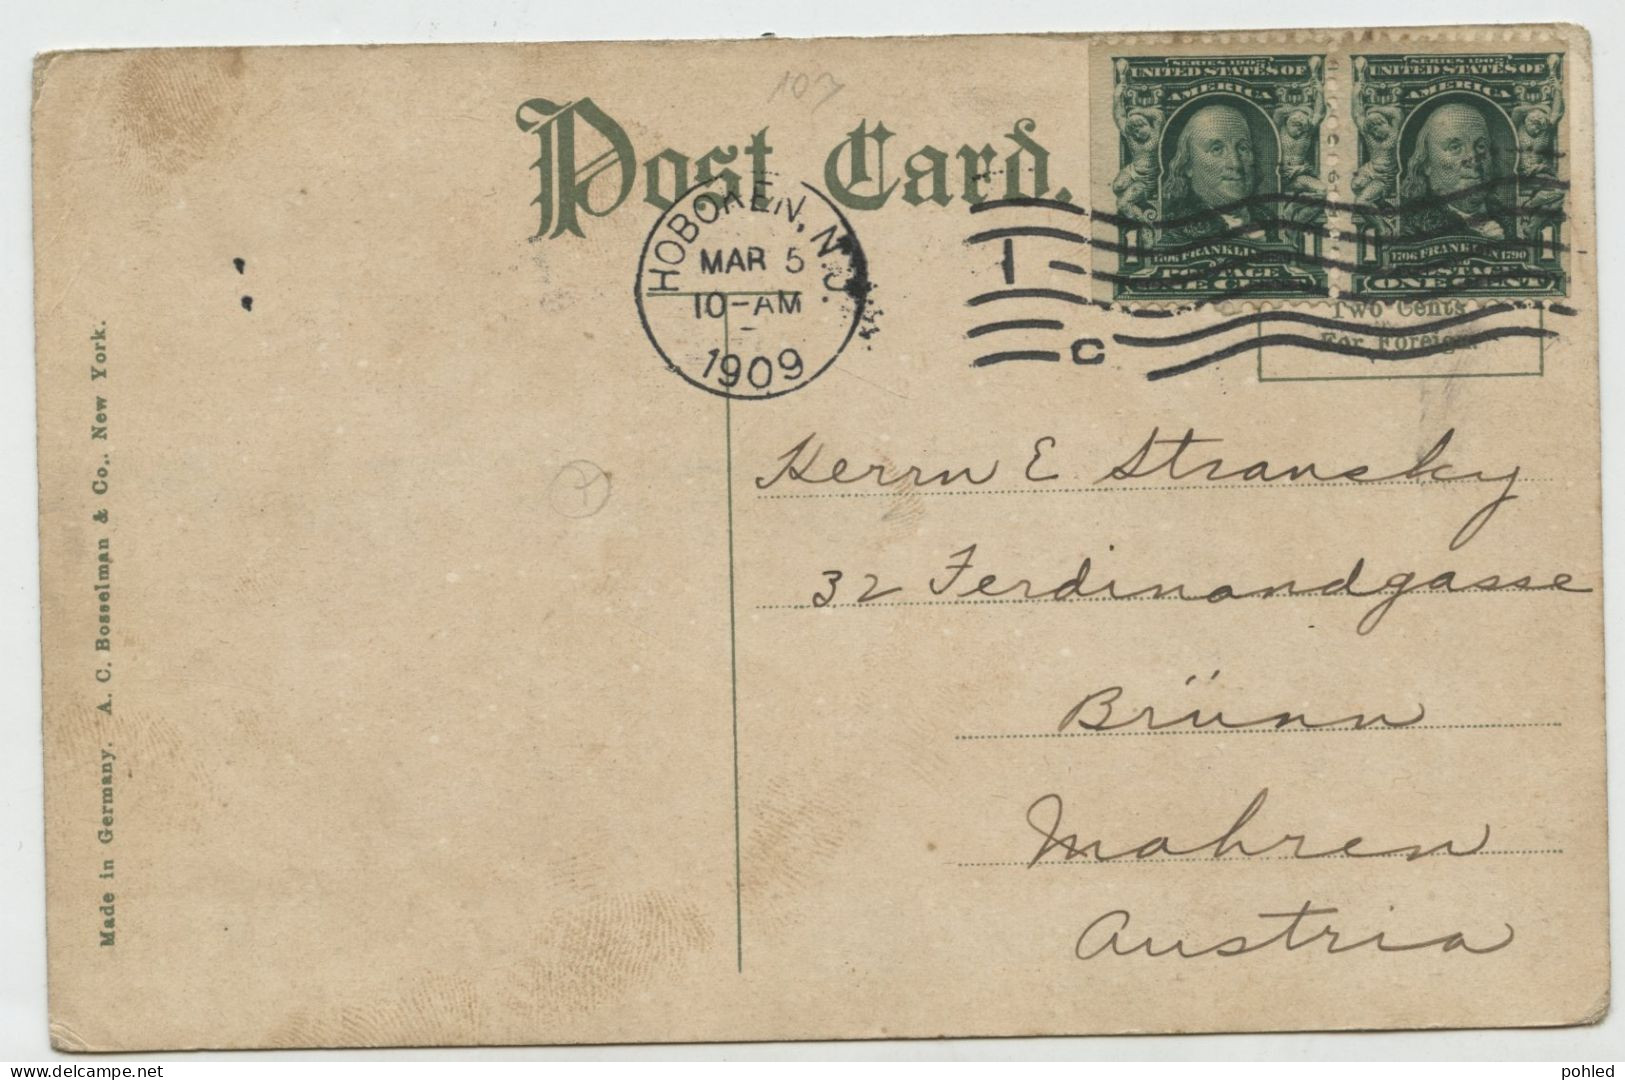 107
Post Card.
SERIES 1902
UNITED STATES OF
AMERICA
1 1706 FRANKLIN 1790 1
POSTAGE
ONE CENT
SERIES 1902
UNITED STATES OF
AMERICA
1 1706 FRANKLIN 1790 1
POSTAGE
ONE CENT
HOBOKEN, N.J.
MAR 5
10-AM
1909
1
C
Two Cents
For Foreign.
Herrn E Stransky
32 Ferdinandgasse
Brünn
Mahren
Austria
Made in Germany. A. C. Bosselman & Co., New York.
www.delcampe.net
pohled